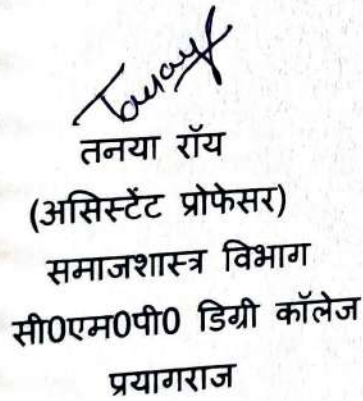 Tanaya
तनया रॉय
(असिस्टेंट प्रोफेसर)
समाजशास्त्र विभाग
सी0एम0पी0 डिग्री कॉलेज
प्रयागराज